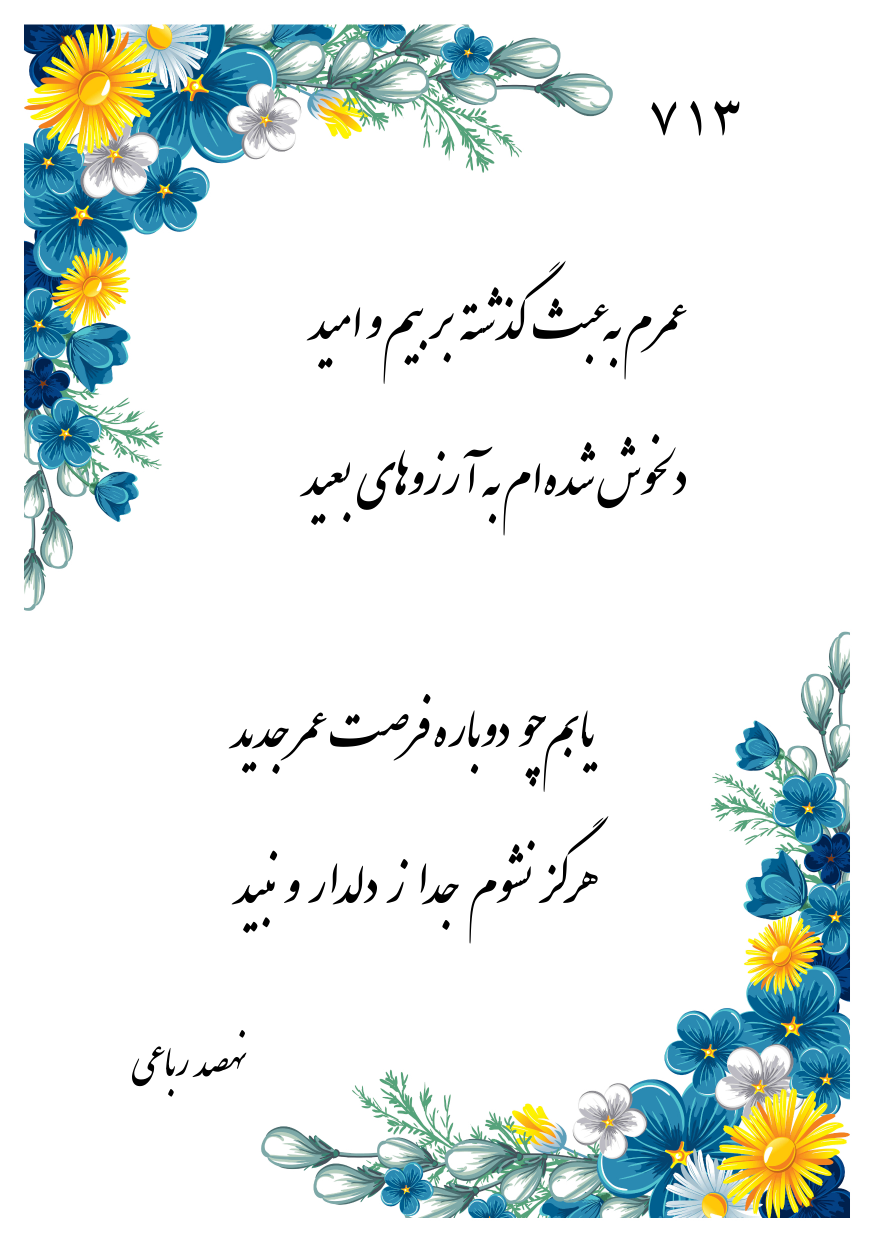 ۷۱۳
عمرم به عبث گذشته بر بیم و امید
دلخوش شده‌ام به آرزوهای بعید
یابم چو دوباره فرصت عمر جدید
هرگز نشوم جدا ز دلدار و نبید
نهصد رباعی